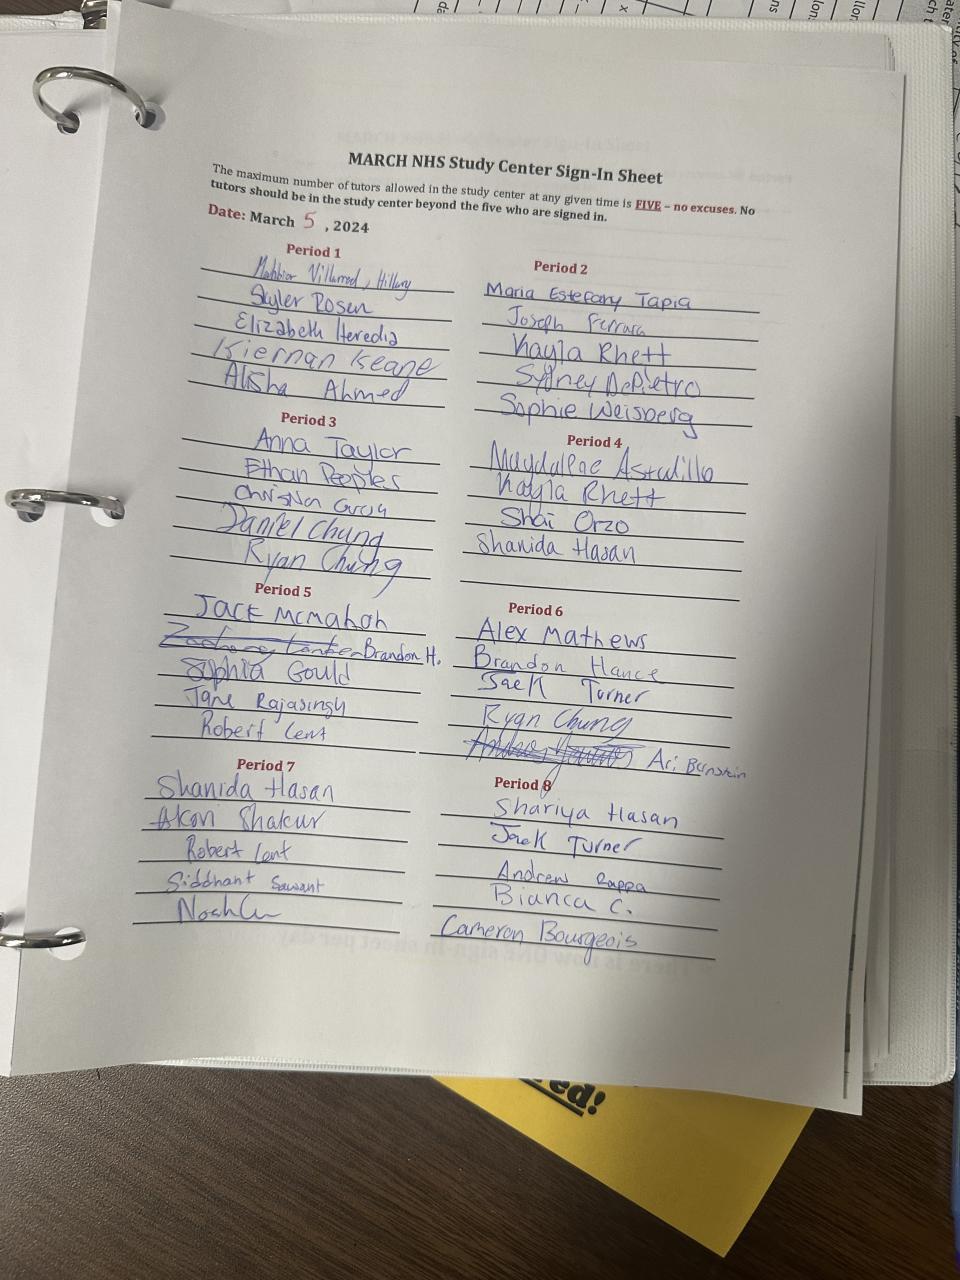 MARCH NHS Study Center Sign-In Sheet
The maximum number of tutors allowed in the study center at any given time is FIVE – no excuses. No
tutors should be in the study center beyond the five who are signed in.
Date: March 5, 2024
Period 1
Villarreal, Hillary
Skyler Rosen
Elizabeth Heredia
Kiernan Keane
Alisha Ahmed
Period 2
Maria Estefany Tapia
Joseph Ferrara
Kayla Rhett
Sydney DePietro
Sophie Weisberg
Period 3
Anna Taylor
Ethan Peoples
Christian
Daniel Chung
Ryan Chung
Period 4
Magdalene Astudillo
Kayla Rhett
Shai Orzo
Shanida Hasan
Period 5
Jack McMahon
Brandon H.
Sophia Gould
Jane Rajasingh
Robert Lent
Period 6
Alex Mathews
Brandon Hance
Jack Turner
Ryan Chung
Ari Bernstein
Period 7
Shanida Hasan
Akori Shakur
Robert Lent
Siddhant Sawant
Noah
Period 8
Shariya Hasan
Jack Turner
Andrew Rappa
Bianca C.
Cameron Bourgeois